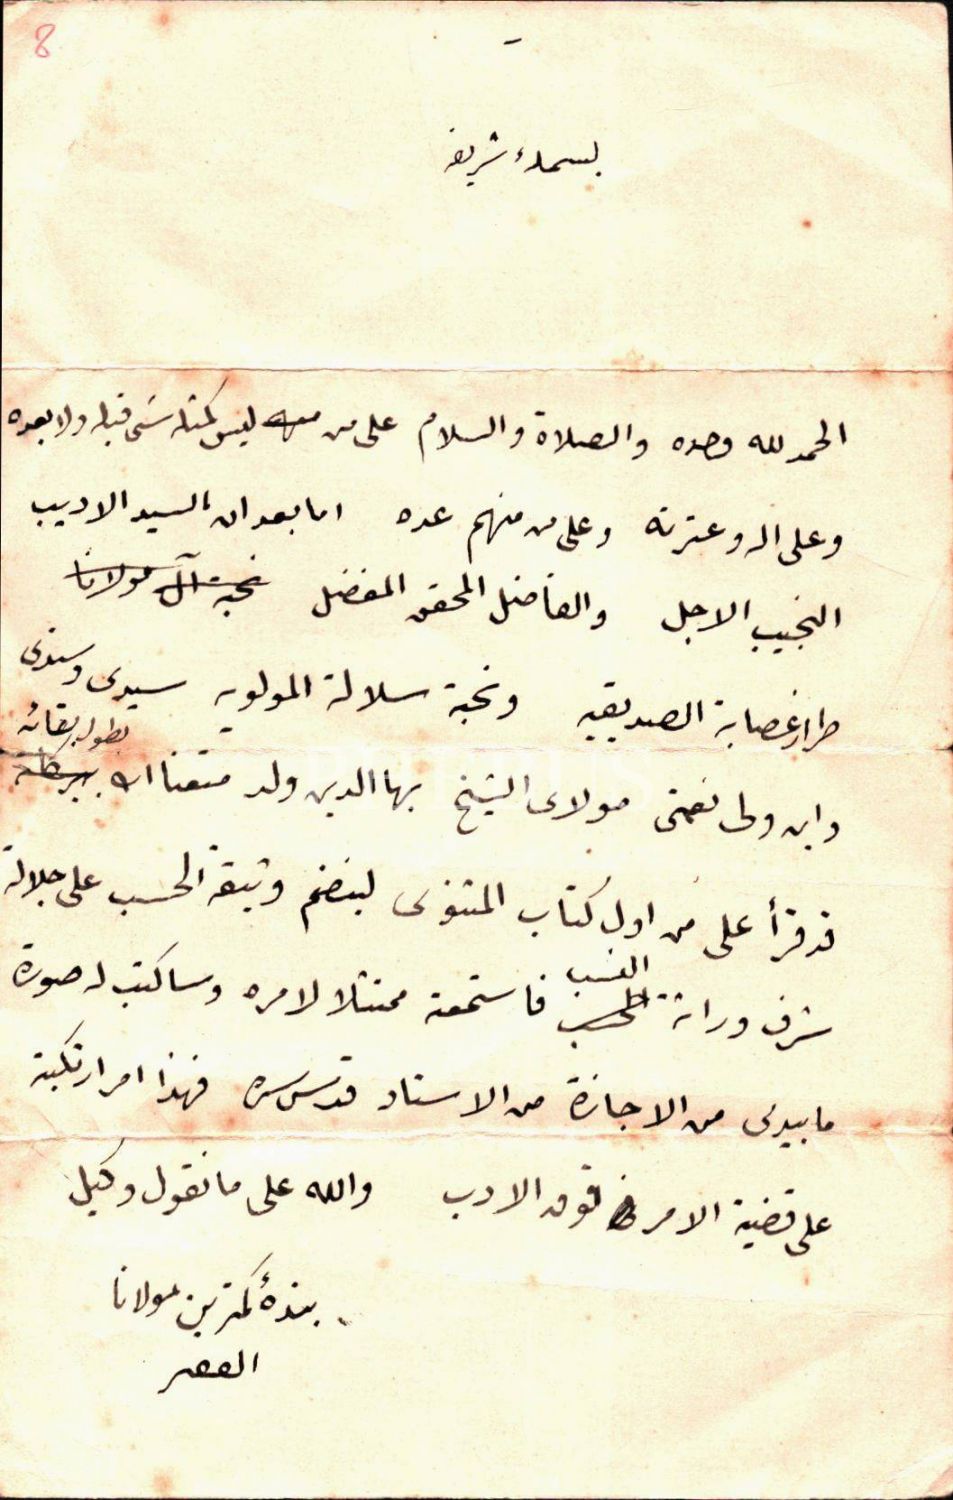 8
بسملهٔ شریفه
الحمد لله وحده والصلاة والسلام على من ليس كمثله شئ قبله ولا بعده
وعلى اله وعترته وعلى من منهم عده اما بعد ان السيد الاديب
النجيب الاجل والفاضل المحقق المفضل نخبة آل مولانا
طراز عصابة الصديقيه ونخبة سلالة المولويه سيدى وسندى
وابن ولى نعمتى مولاى الشيخ بها الدين ولد متعنا الله ببركاته بطول بقائه
قد قرأ على من اول كتاب المثنوى لينضم وثيقة الحسب على جلالة
شرف وراثة الحسب النسب فاستمعته ممتثلا لامره وساكتب له صورة
ما بيدى من الاجازة من الاستاد قدس سره فهذا امر ارتكبته
على قضية الامر فوق الادب والله على ما نقول وكيل
بندهٔ كمترين مولانا
الفقير